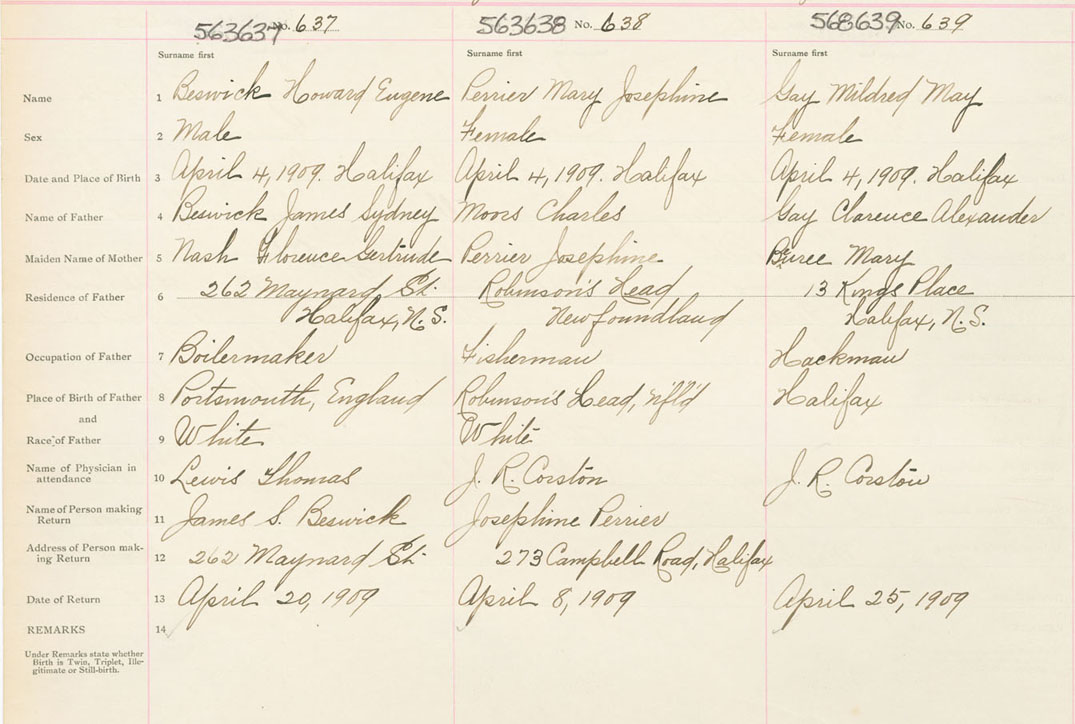 563637 No. 637 563638 No. 638 568639 No. 639
Surname first Surname first Surname first
Name 1 Beswick Howard Eugene Perrier Mary Josephine Gay Mildred May
Sex 2 Male Female Female
Date and Place of Birth 3 April 4, 1909. Halifax April 4, 1909. Halifax April 4, 1909. Halifax
Name of Father 4 Beswick James Sydney Moors Charles Gay Clarence Alexander
Maiden Name of Mother 5 Nash Florence Gertrude Perrier Josephine Mary
Residence of Father 6 262 Maynard St. Robinson's Head 13 Kings Place
Halifax, N.S. Newfoundland Halifax, N.S.
Occupation of Father 7 Boilermaker Fisherman Hackman
Place of Birth of Father 8 Portsmouth, England Robinson's Head, Nfld Halifax
and
Race of Father 9 White White
Name of Physician in
attendance 10 Lewis Thomas J. R. Corston J. R. Corston
Name of Person making
Return 11 James S. Beswick Josephine Perrier
Address of Person mak-
ing Return 12 262 Maynard St. 273 Campbell Road, Halifax
Date of Return 13 April 20, 1909 April 8, 1909 April 25, 1909
REMARKS 14
Under Remarks state whether
Birth is Twin, Triplet, Ille-
gitimate or Still-birth.